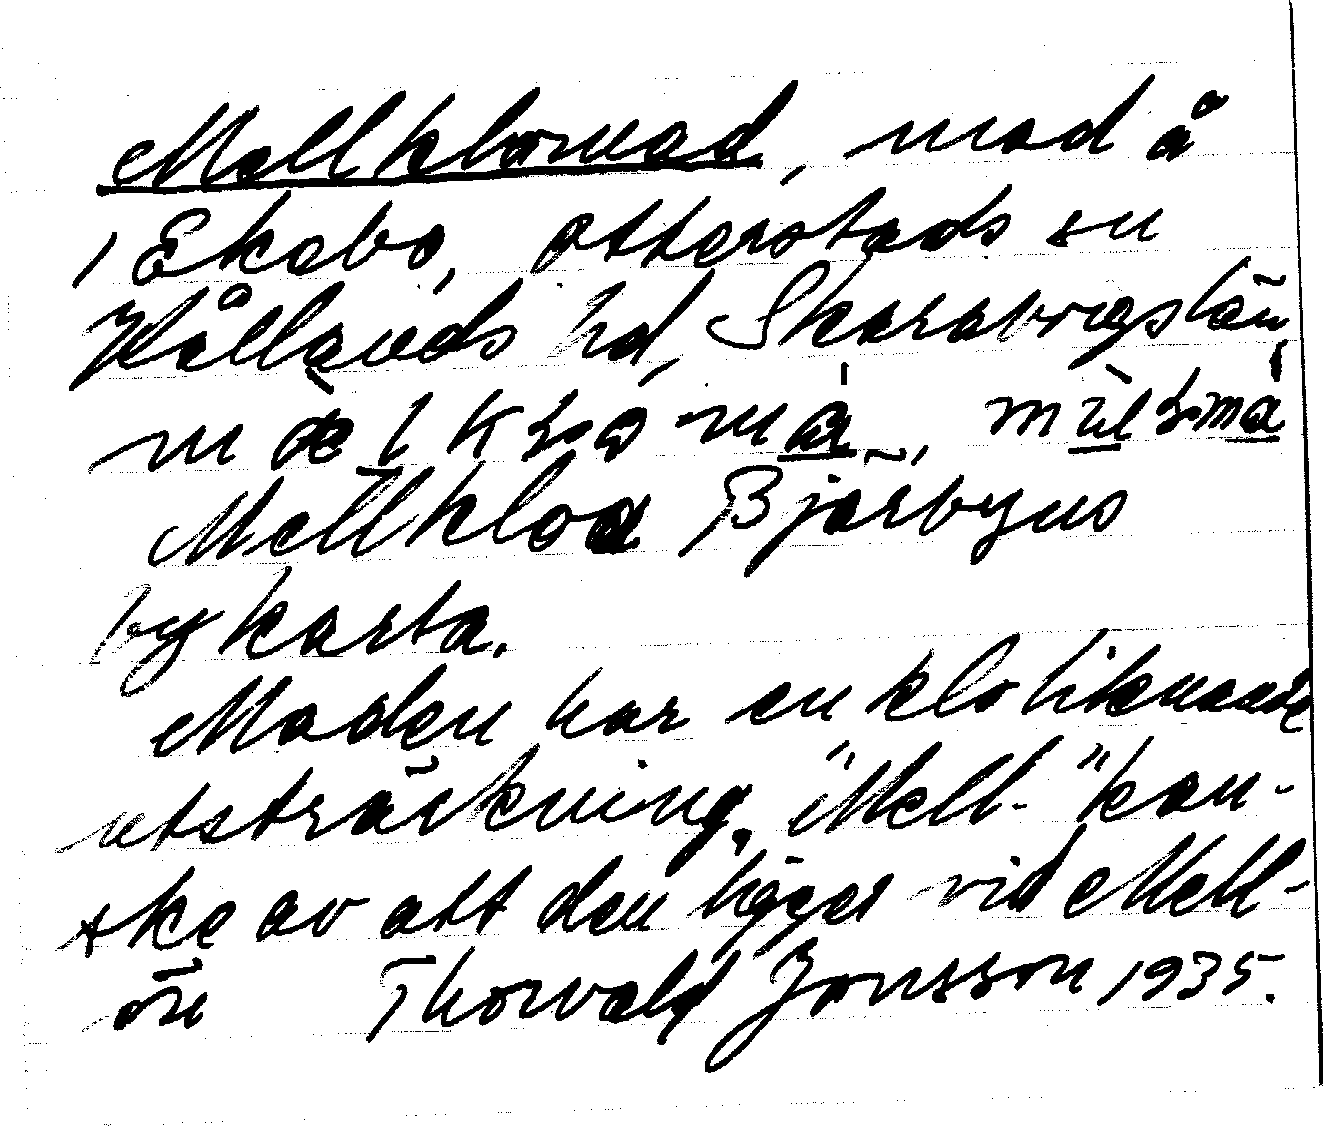 Mellklomad, mad å
i Ekebo, Otterstads sn
Kållands hd, Skaraborgs län,
Mellkloa i Bjärbyns
bykarta.
Maden har en kloliknande
utsträckning. "Mell-" kan-
ske av att den ligger vid Mell-
ön Thorvald Jonsson 1935.